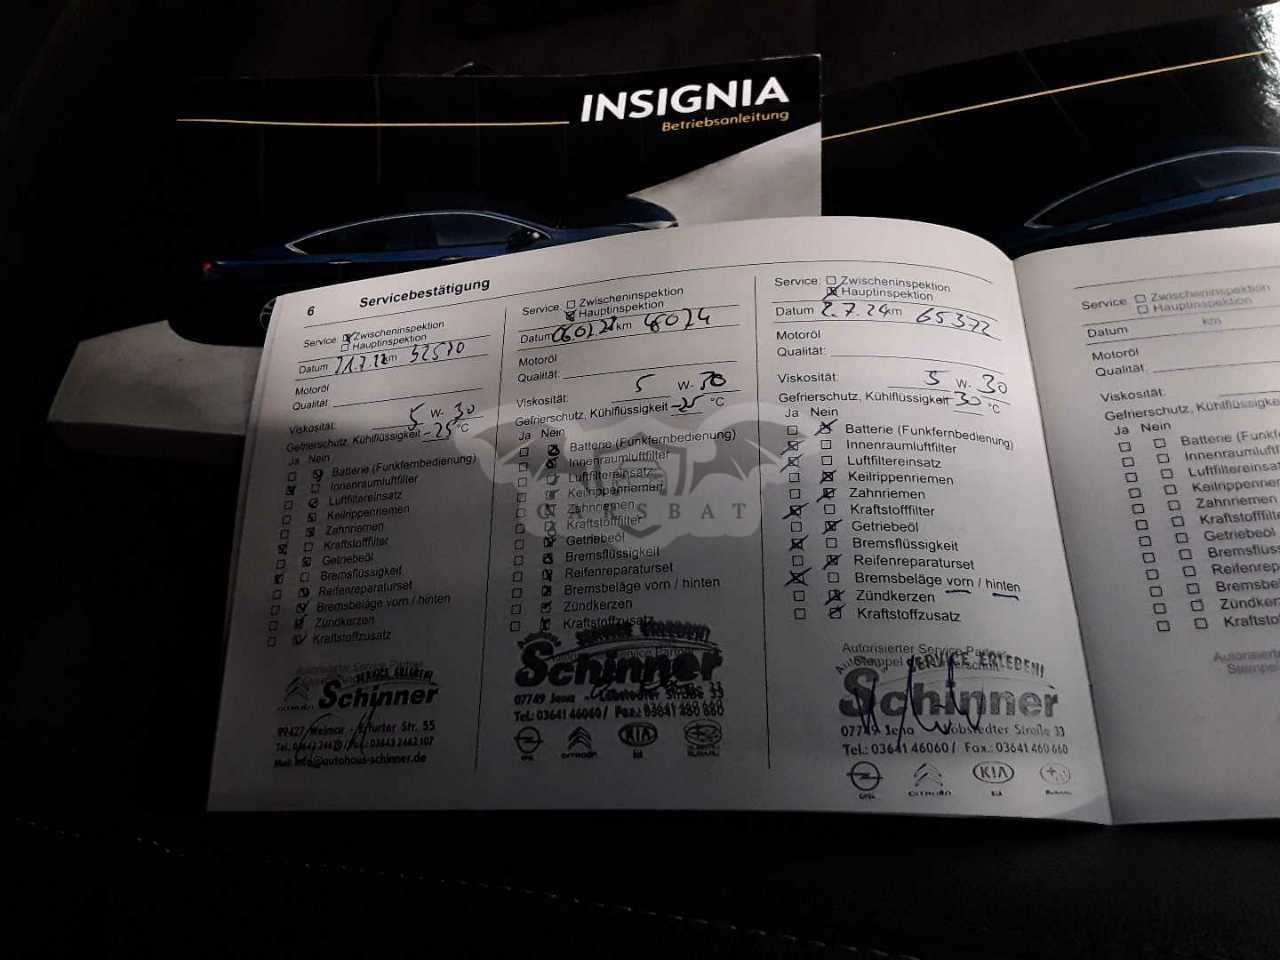 INSIGNIA
Betriebsanleitung
6
Servicebestätigung
Service: Zwischeninspektion
Hauptinspektion
Datum km
Motoröl
Qualität:
Viskosität: 5 W- 30
Gefrierschutz, Kühlflüssigkeit -25 °C
Ja Nein
Batterie (Funkfernbedienung)
Innenraumluftfilter
Luftfiltereinsatz
Keilrippenriemen
Zahnriemen
Kraftstofffilter
Getriebeöl
Bremsflüssigkeit
Reifenreparaturset
Bremsbeläge vorn / hinten
Zündkerzen
Kraftstoffzusatz
Autorisierter Service Partner
SERVICE ERLEBEN!
Schinner
CITROËN
99427 Weimar - Erfurter Str. 55
Mail: info@autohaus-schinner.de
Service: Zwischeninspektion
Hauptinspektion
Datum km
Motoröl
Qualität:
Viskosität: 5 W- 30
Gefrierschutz, Kühlflüssigkeit -25 °C
Ja Nein
Batterie (Funkfernbedienung)
Innenraumluftfilter
Luftfiltereinsatz
Keilrippenriemen
Zahnriemen
Kraftstofffilter
Getriebeöl
Bremsflüssigkeit
Reifenreparaturset
Bremsbeläge vorn / hinten
Zündkerzen
Kraftstoffzusatz
SERVICE ERLEBEN!
Schinner
07749 Jena - Löbstedter Straße 33
Tel.: 03641 46060 / Fax.: 03641 460 660
OPEL CITROËN KIA SUBARU
Service: Zwischeninspektion
Hauptinspektion
Datum 2.7.24 km 65372
Motoröl
Qualität:
Viskosität: 5 W- 30
Gefrierschutz, Kühlflüssigkeit 30 °C
Ja Nein
Batterie (Funkfernbedienung)
Innenraumluftfilter
Luftfiltereinsatz
Keilrippenriemen
Zahnriemen
Kraftstofffilter
Getriebeöl
Bremsflüssigkeit
Reifenreparaturset
Bremsbeläge vorn / hinten
Zündkerzen
Kraftstoffzusatz
Autorisierter Service Partner
SERVICE ERLEBEN!
Schinner
07749 Jena - Löbstedter Straße 33
Tel.: 03641 46060 / Fax.: 03641 460 660
OPEL CITROËN KIA SUBARU
Service: Zwischeninspektion
Hauptinspektion
Datum km
Motoröl
Qualität:
Viskosität:
Gefrierschutz, Kühlflüssig
Ja Nein
Batterie (Funkfern
Innenraumluftfilte
Luftfiltereinsatz
Keilrippenriemen
Zahnriemen
Kraftstofffilte
Getriebeöl
Bremsflüss
Reifenrepa
Bremsbel
Zündker
Kraftsto
Autorisierte
Stempel
CARSBAT